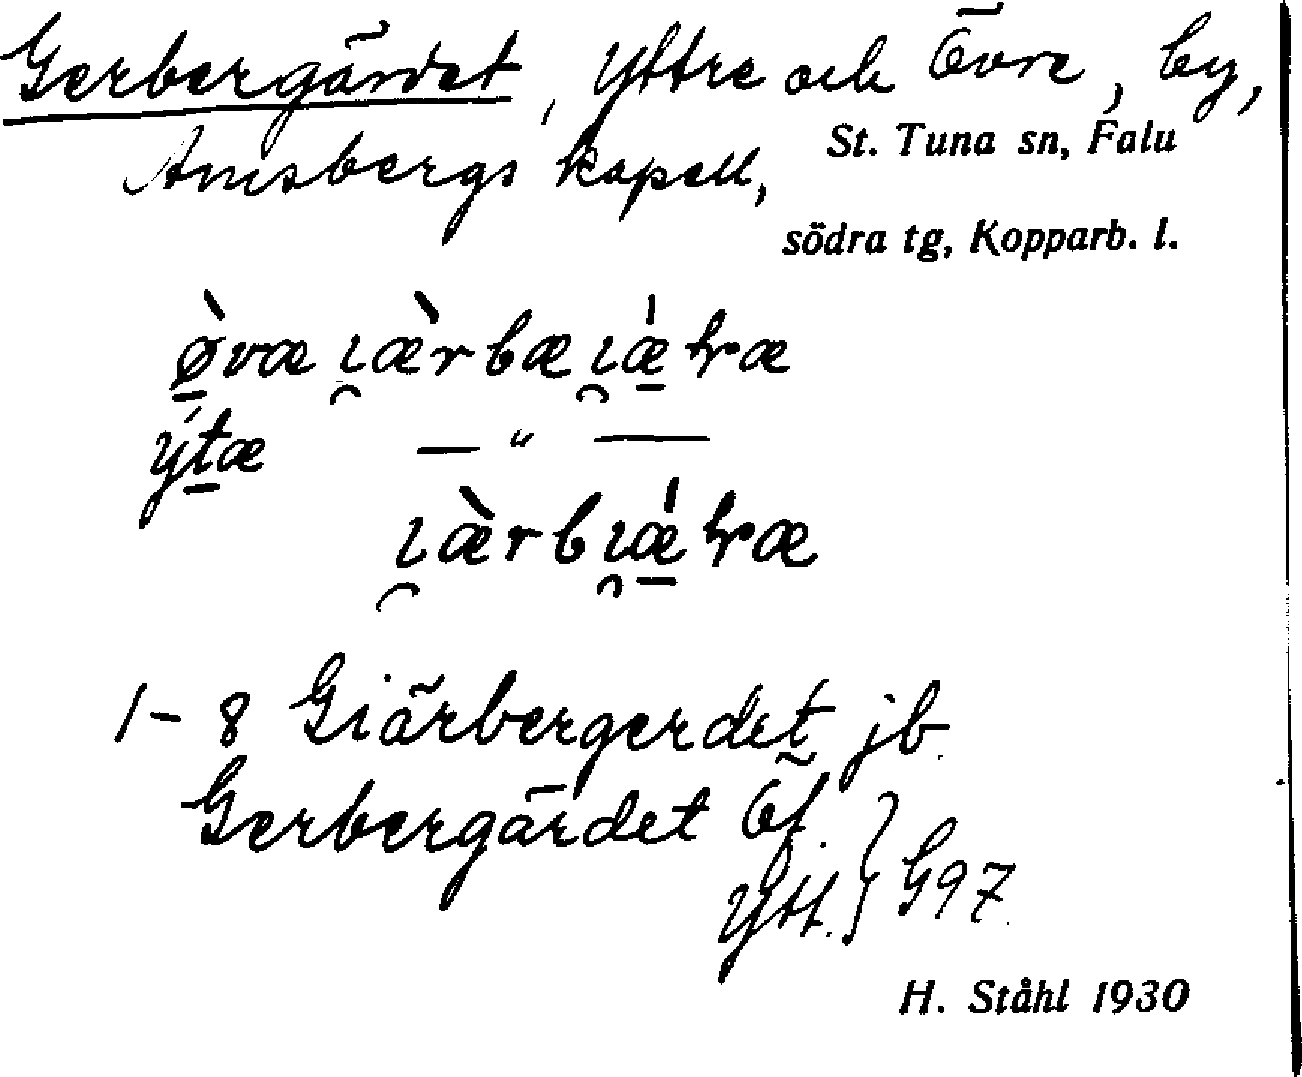 Gerbergärdet, Yttre och Övre, by,
Amsbergs kapell, St. Tuna sn, Falu
södra tg, Kopparb. l.
ø̠̀væ ι̯æ̀rbæι̯ǽ̠træ
ýt̠æ — " —
ι̯æ̀rbι̯ǽ̠træ
1-8 Giärbergerdet jb.
Gerbergärdet Öf.
Ytt. } G97.
H. Ståhl 1930